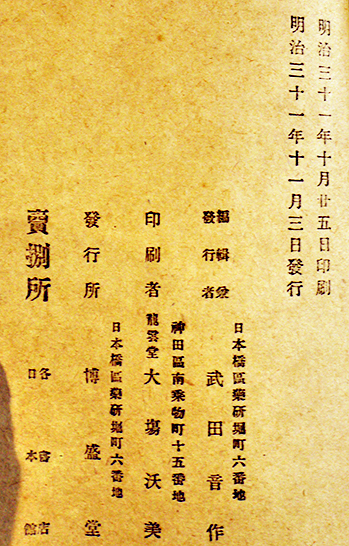 明治三十一年十月廿五日印刷
明治三十一年十一月三日發行
日本橋區藥研堀町六番地
編輯兼發行者 武田音作
神田區南乘物町十五番地
印刷者 龍雲堂 大塲沃美
日本橋區藥研堀町六番地
發行所 博盛堂
賣捌所 各書店
日本館